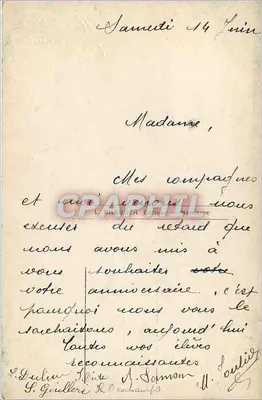 Samedi 14 Juin
Madame,
Mes compagnes
et moi venons nous
excuser du retard que
nous avons mis à
vous souhaiter votre
votre anniversaire, c'est
pourquoi nous vous le
souhaitons, aujourd'hui
Toutes vos élèves
reconnaissantes
A. Samson
CPAPHIL